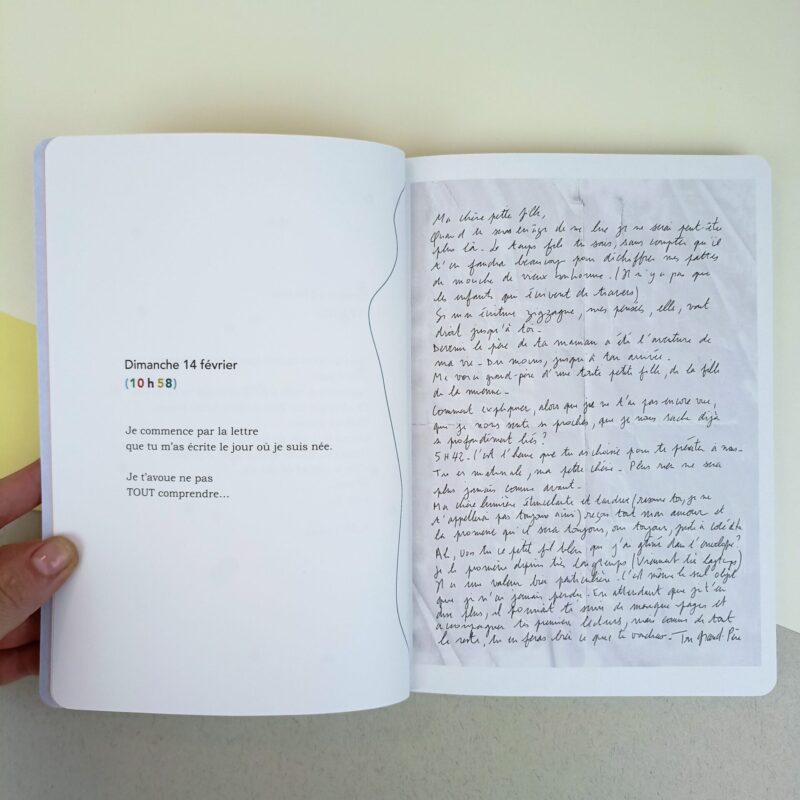 Dimanche 14 février
(10 h 58)
Je commence par la lettre
que tu m'as écrite le jour où je suis née.
Je t'avoue ne pas
TOUT comprendre...
Ma chère petite fille,
Quand tu seras en âge de me lire je ne serai peut-être
plus là. Le temps file tu sais, sans compter qu'il
t'en faudra beaucoup pour déchiffrer mes pattes
de mouche de vieux bonhomme. (Il n'y a pas que
les enfants qui écrivent de travers)
Si mon écriture zigzague, mes pensées, elles, vont
droit jusqu'à toi.
Devenir le père de ta maman a été l'aventure de
ma vie. Du moins, jusqu'à ton arrivée.
Me voici grand-père d'une toute petite fille, de la fille
de la mienne.
Comment expliquer, alors que je ne t'ai pas encore vue,
que je nous sente si proches, que je nous sache déjà
si profondément liés ?
5H42. C'est l'heure que tu as choisie pour te présenter à nous.
Tu es matinale, ma petite chérie. Plus rien ne sera
plus jamais comme avant.
Ma chère lumière étincelante et tendre (rassure toi, je ne
t'appellerai pas toujours ainsi) reçois tout mon amour et
la promesse qu'il sera toujours, oui toujours, juste à côté de toi.
Ah, vois tu ce petit fil bleu que j'ai glissé dans l'enveloppe ?
Je le promène depuis très longtemps (Vraiment très longtemps)
Il a une valeur très particulière. C'est même le seul objet
que je n'ai jamais perdu. En attendant que je t'en
dise plus, il pourrait te servir de marque pages et
accompagner tes premières lectures, mais comme de tout
le reste, tu en feras bien ce que tu voudras. Ton grand Père